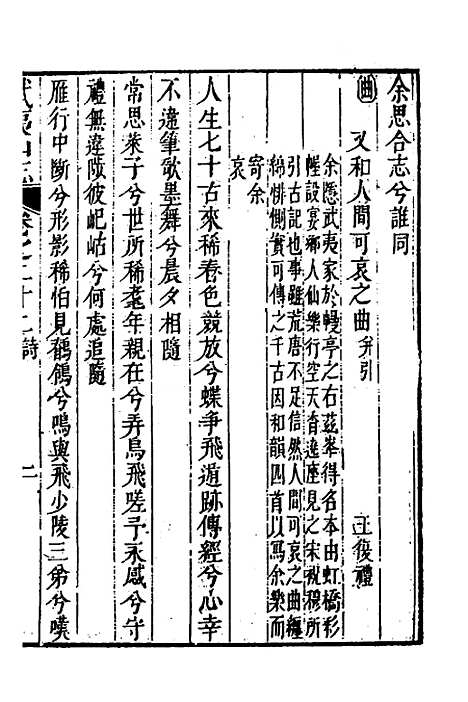 余思合志兮誰同
曲
又和人間可哀之曲并引 王復禮
余隱武夷家於幔亭之右茲峯得名本由虹橋彩
幄設宴鄉人仙樂行空天香遶座見之宋祝穆所
引古記也事雖荒唐不足信然人間可哀之曲纏
綿悱惻實可傳之千古因和韻四首以寫余樂而
寄余
哀
人生七十古來稀春色競放兮蝶爭飛遁跡傳經兮心幸
不違筆歌墨舞兮晨夕相隨
常思萊子兮世所稀耄年親在兮弄鳥飛嗟予永感兮守
禮無違陟彼屺岵兮何處追隨
雁行中斷兮形影稀怕見鶺鴒兮鳴與飛少陵三弟兮嘆
武夷山志 卷之二十二 詩 二